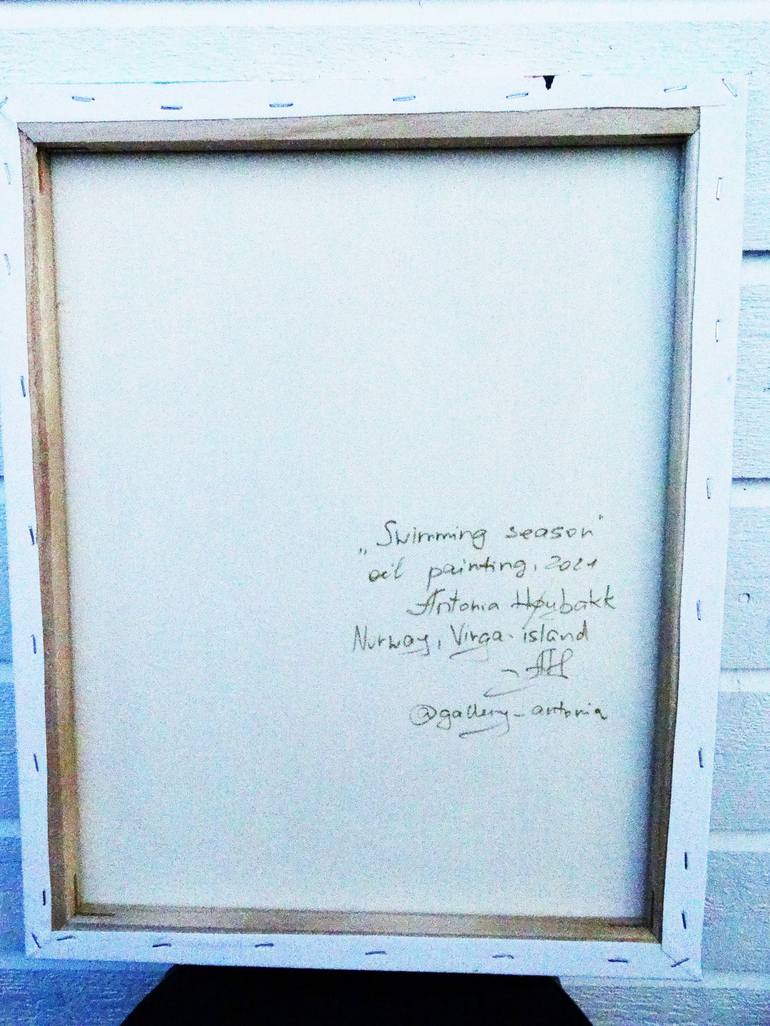 „Swimming season"
oil painting, 2021
Antonia Høybakk
Norway, Virga-island
- AH
@gallery_antonia